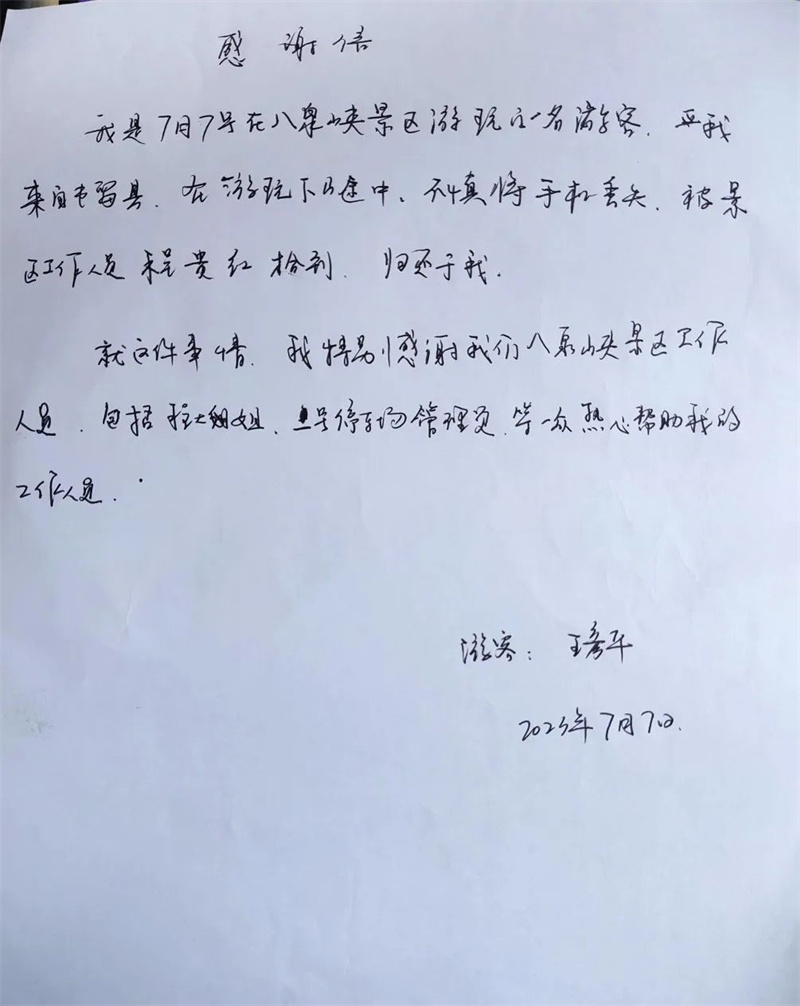 感谢信
我是7月7号在八泉峡景区游玩的一名游客.
来自屯留县.在游玩下山途中.不慎将手机丢失.被景
区工作人员程贵红拾到.归还于我.
就这件事情.我特别感谢我们八泉峡景区工作
人员.包括程大姐姐.停车场管理员.等一众热心帮助我的
工作人员.
游客：王彦平
2023年7月7日.